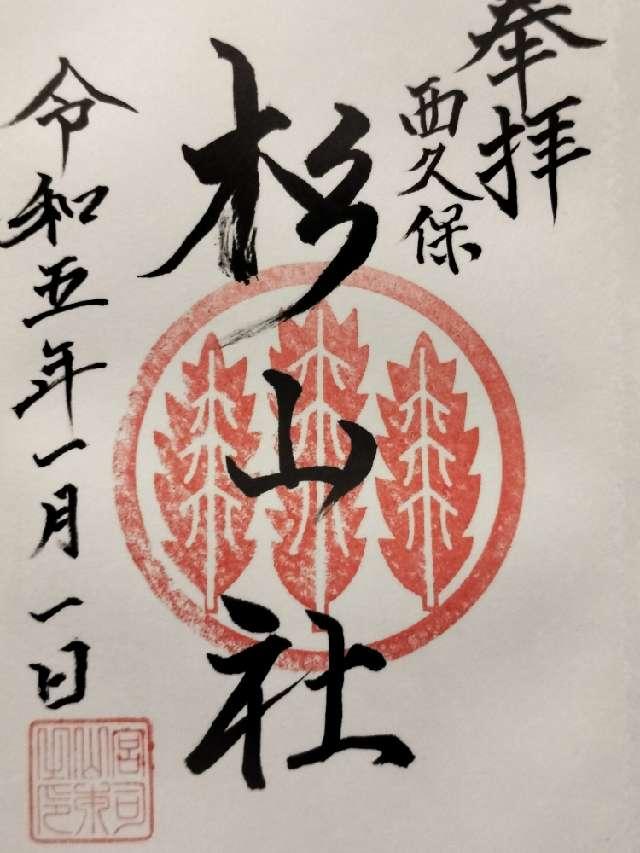 奉拝
西久保
杉山社
令和五年一月一日